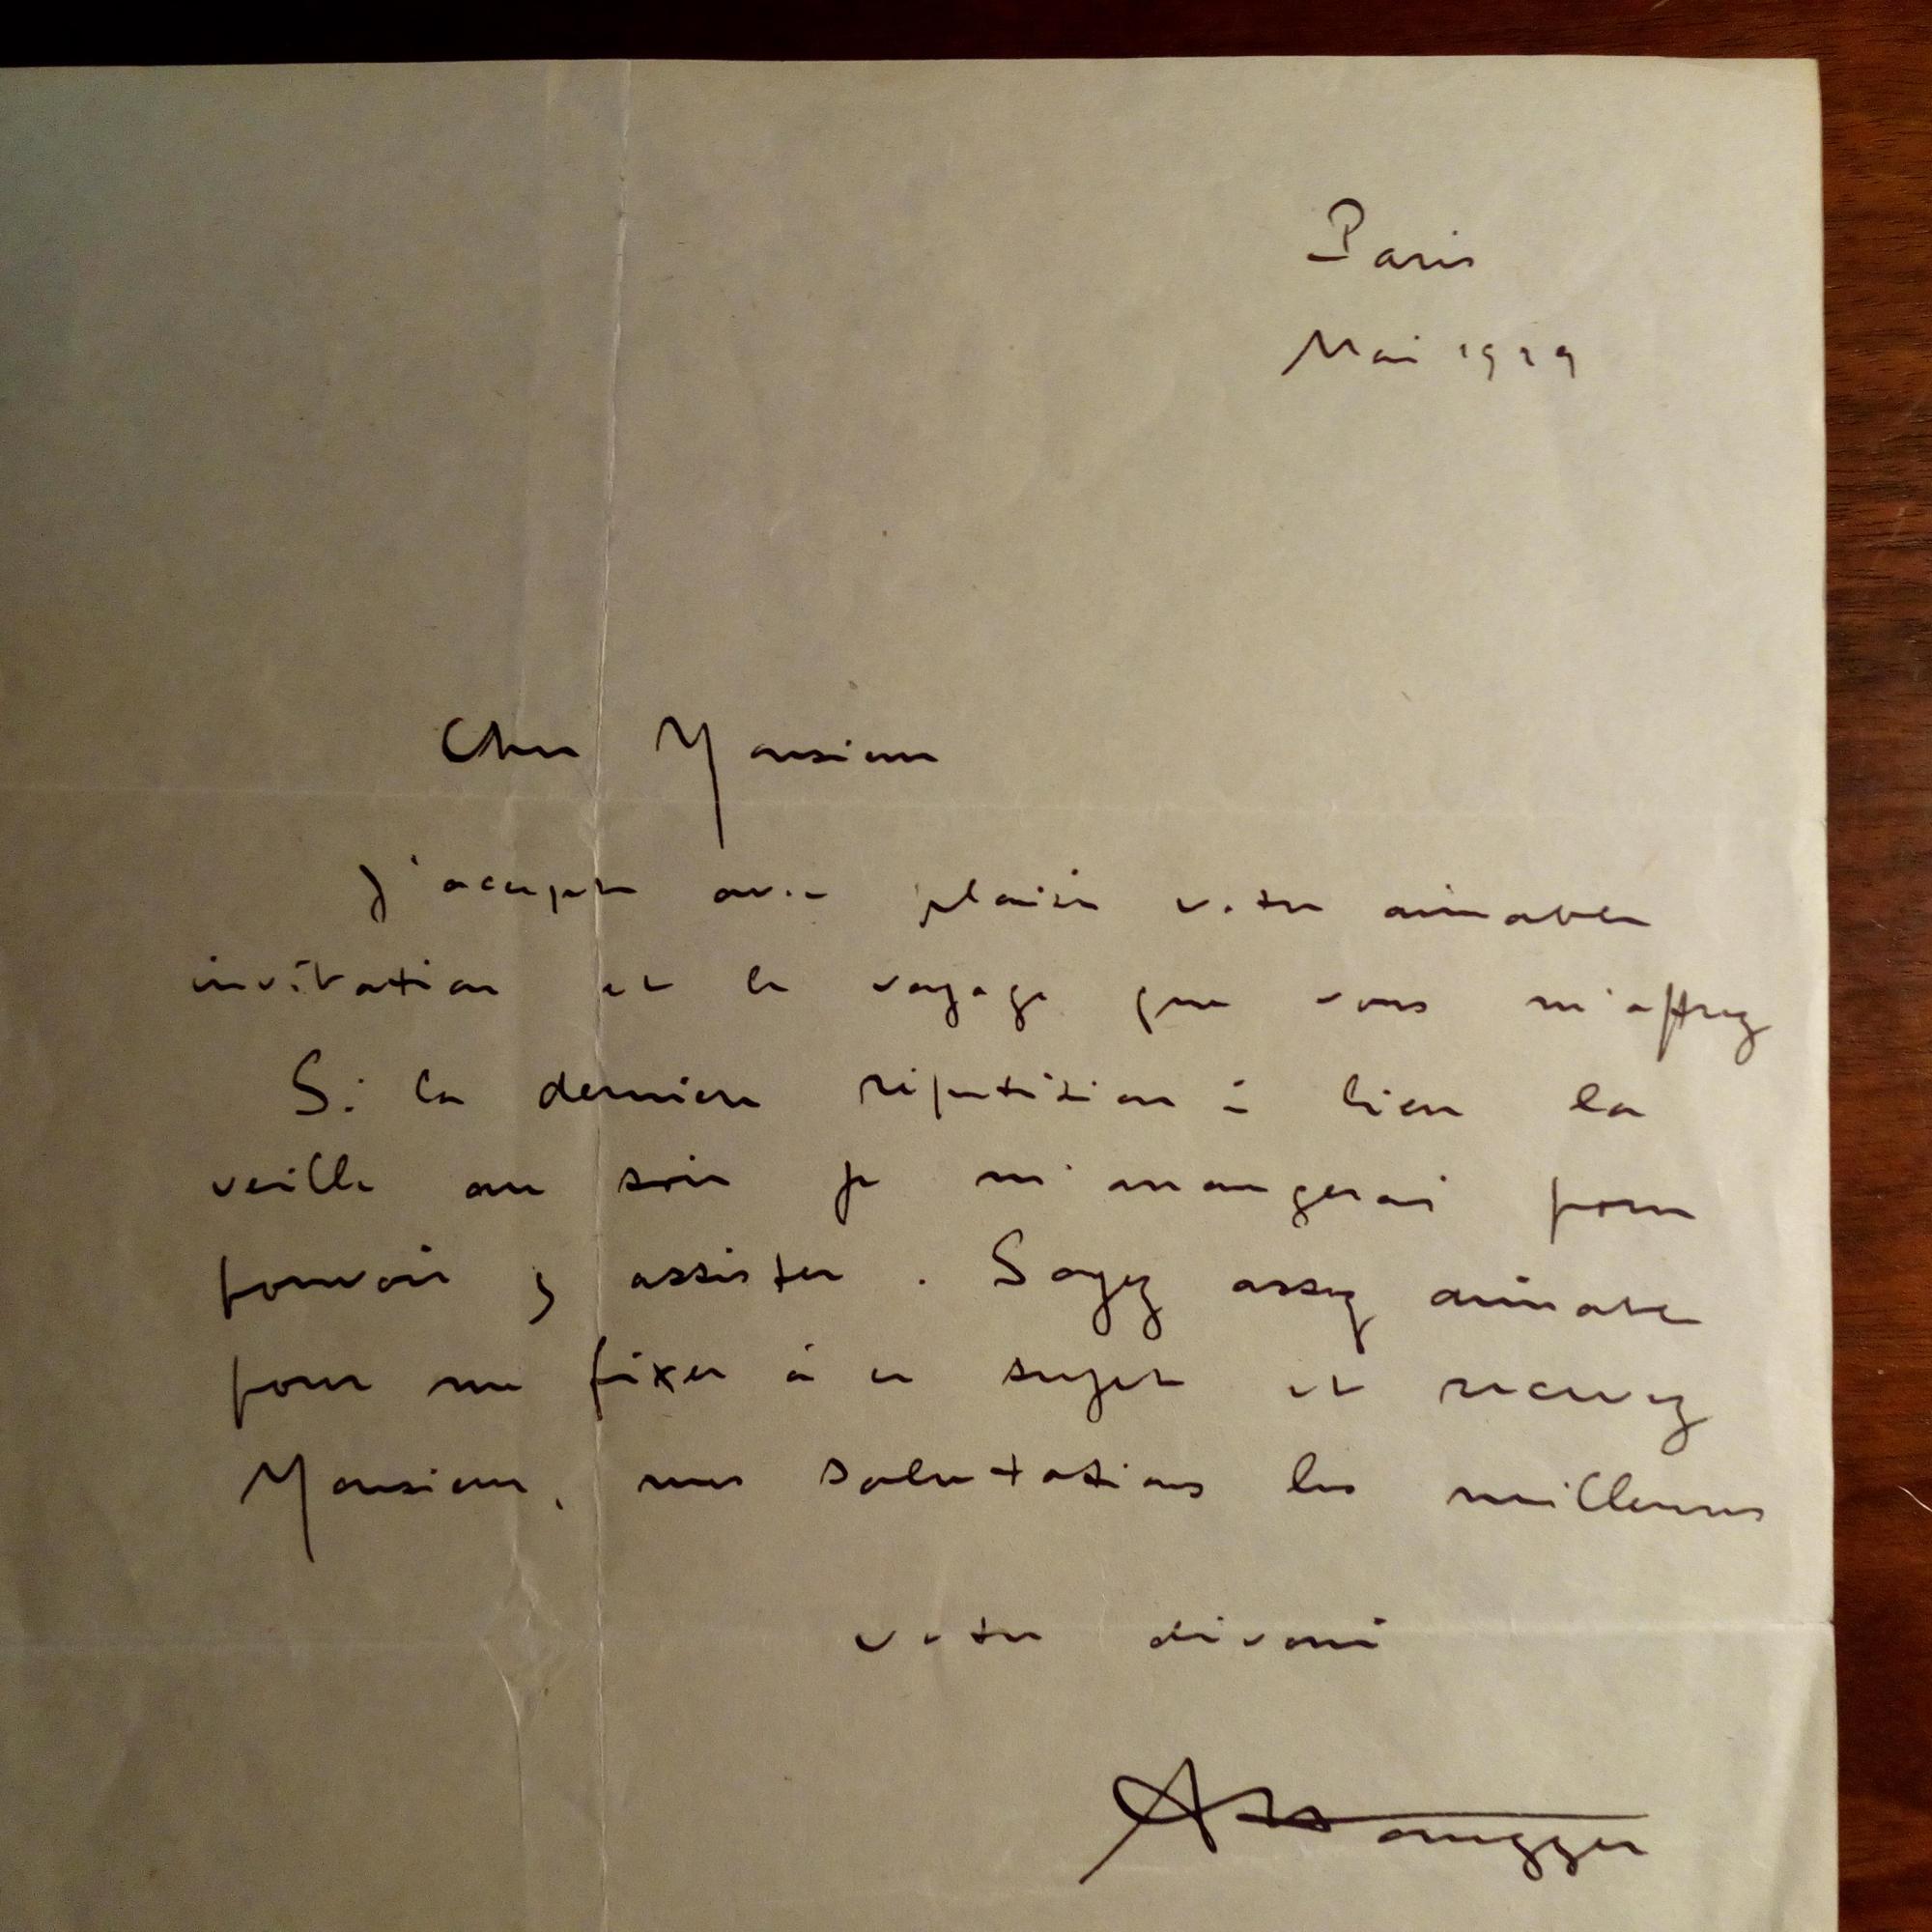 Paris
Mai 1929
Cher Monsieur
J'accepte avec plaisir votre aimable
invitation et le voyage que vous m'offrez
Si la dernière répétition à lieu la
veille au soir je m'arrangerai pour
pouvoir y assister. Soyez assez aimable
pour me fixer à ce sujet et recevez
Monsieur, mes salutations les meilleures
votre dévoué
AHonegger